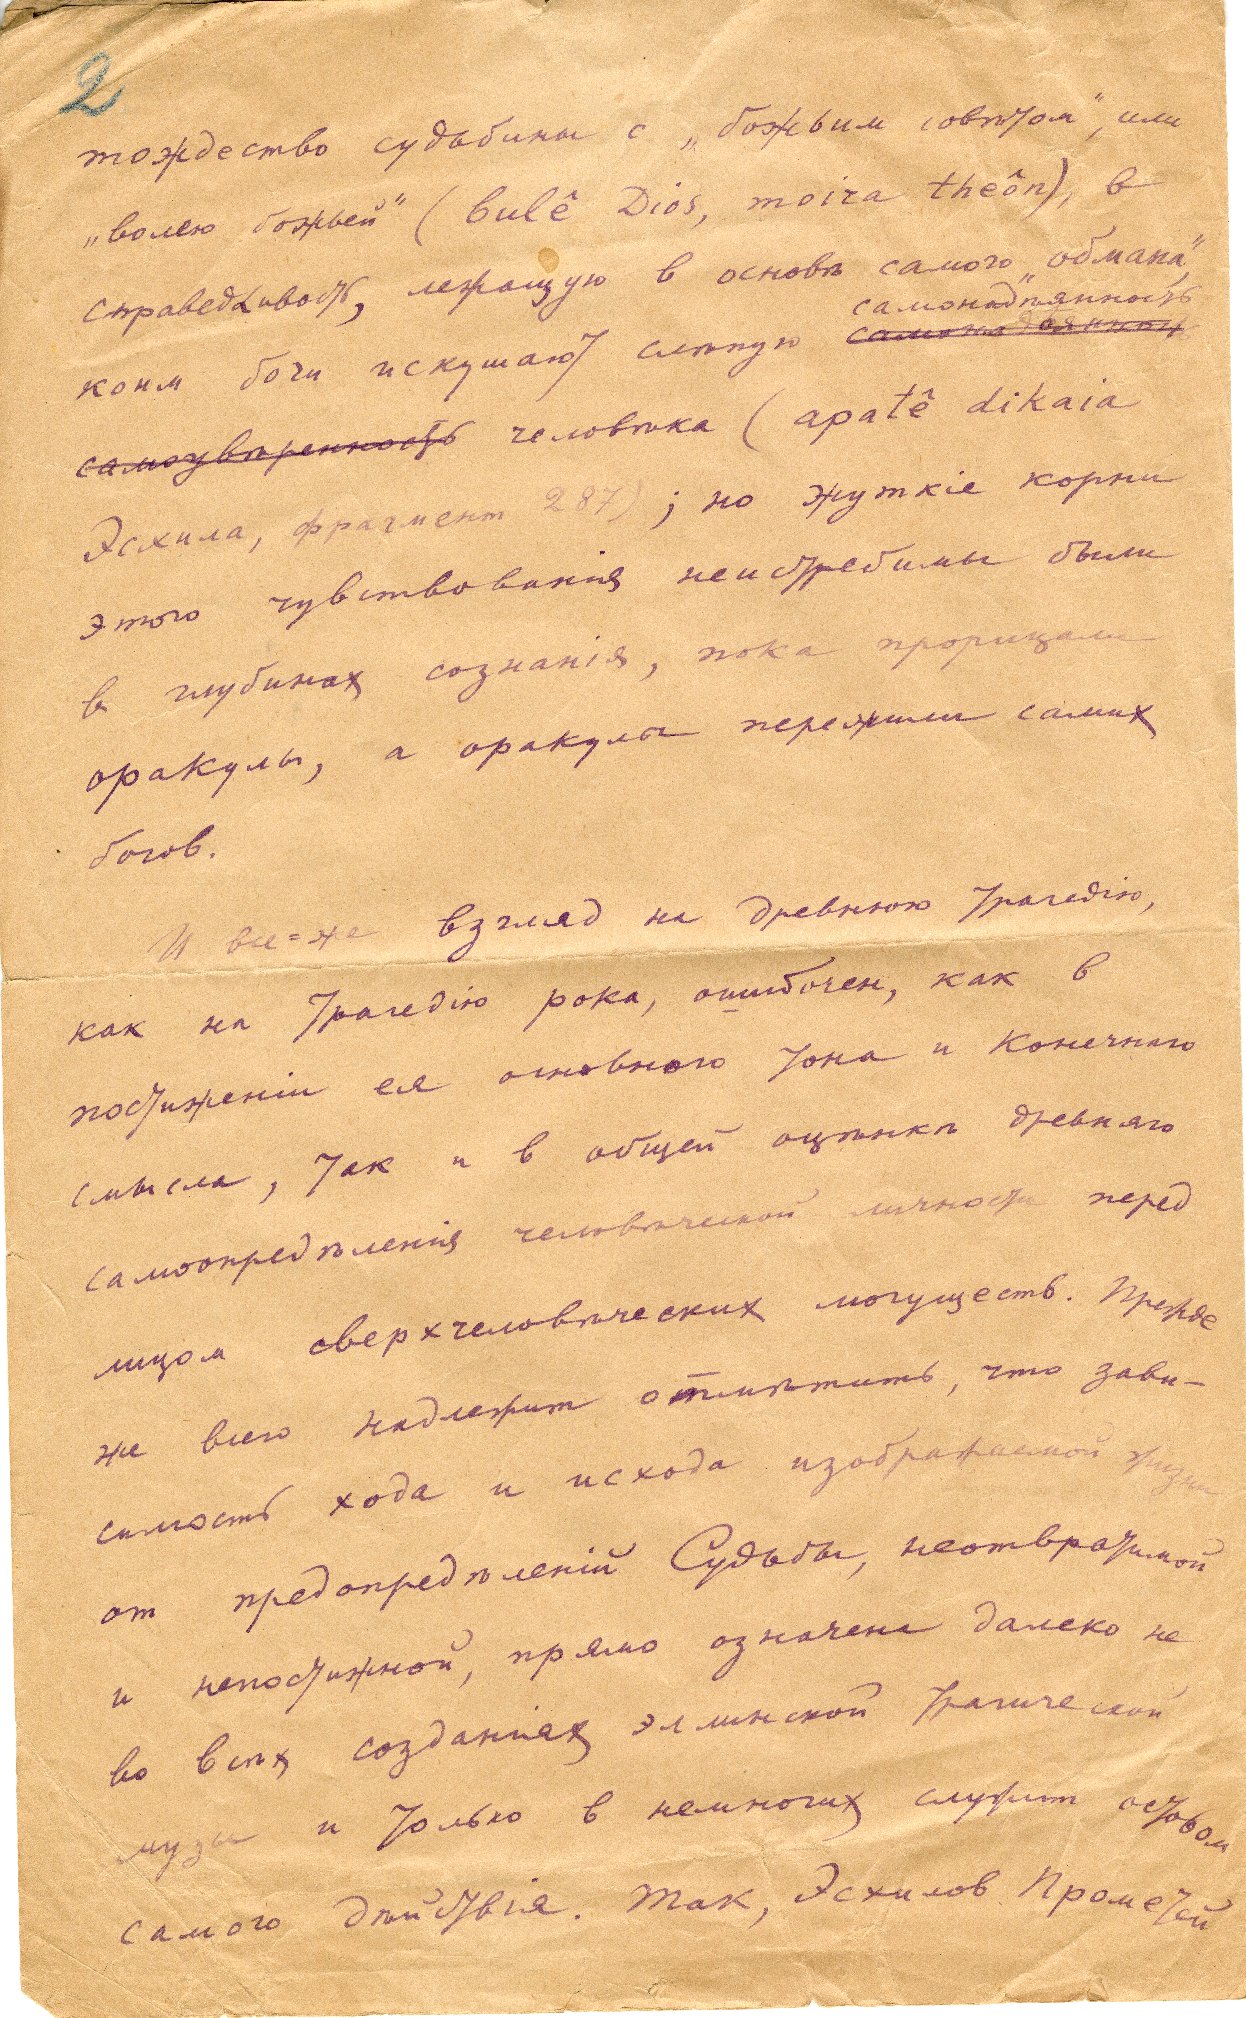 2
тождество судьбины с „божьим совѣтом“, или
„волею божьей“ (bulê Dios, moira theôn), в
справедливость, лежащую в основѣ самого „обмана“,
самонадѣянность
коим боги искушают слѣпую самонадѣянность
самоувѣренность человѣка (apatê dikaia
Эсхила, фрагмент 287); но жуткіе корни
этого чувствованія неистребимы были
в глубинах сознанія, пока прорицали
оракулы, а оракулы пережили самих
богов.
И все=же взгляд на древнюю трагедію,
как на трагедію рока, ошибочен, как в
постиженіи ея основного тона и конечнаго
смысла, так и в общей оцѣнкѣ древняго
самоопредѣленія человѣческой личности перед
лицом сверхчеловѣческих могуществ. Прежде
же всего надлежит отмѣтить, что зави-
симость хода и исхода изображаемой жизни
от предопредѣленій Судьбы, неотвратимой
и непостижной, прямо означена далеко не
во всѣх созданіях эллинской трагической
музы и только в немногих служит остовом
самого дѣйствія. Так, Эсхилов Прометей